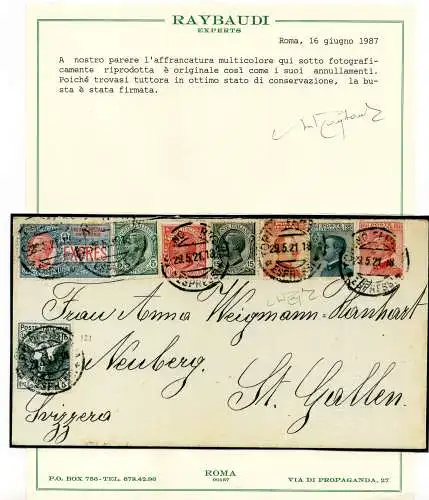 RAYBAUDI
EXPERTS
Roma, 16 giugno 1987
A nostro parere l'affrancatura multicolore qui sotto fotografi-
camente riprodotta è originale così come i suoi annullamenti.
Poiché trovasi tuttora in ottimo stato di conservazione, la bu-
sta è stata firmata.
EXPRES
29.5.21.18
29.5.21.18
Frau Anna Weigmann-Hanhart
Neuberg.
St. Gallen.
Svizzera
P.O. BOX 756 - TEL. 679.42.90
ROMA
00187
VIA DI PROPAGANDA, 27